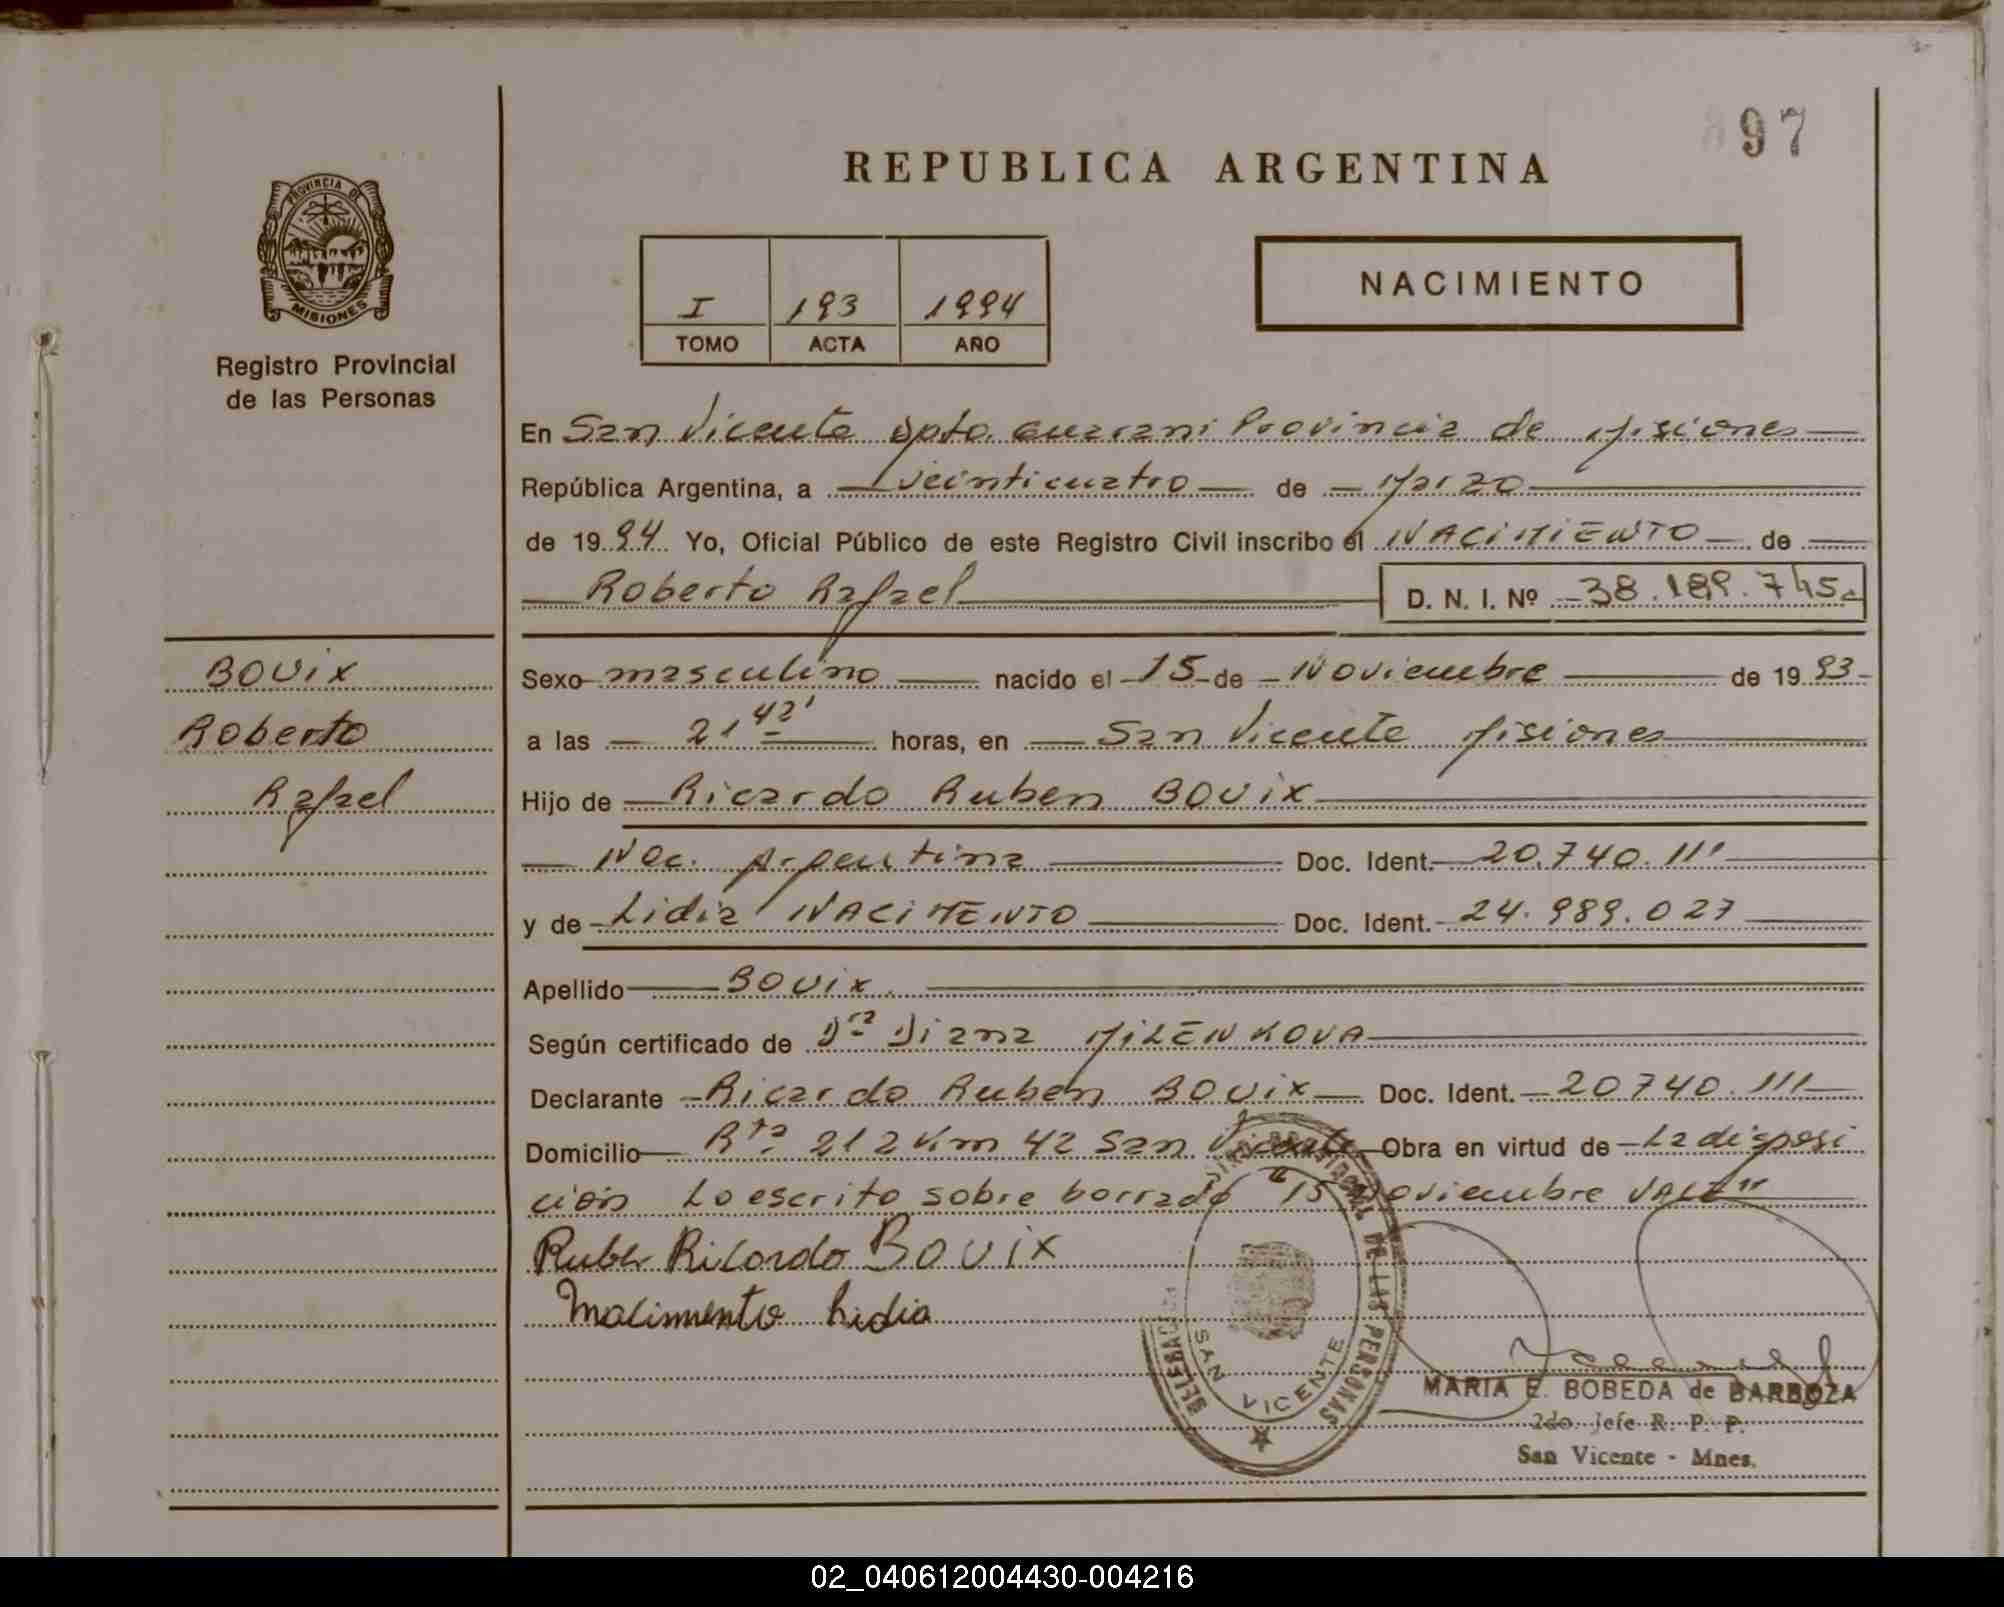 97
REPUBLICA ARGENTINA
PROVINCIA DE
MISIONES
Registro Provincial
de las Personas
I 193 1994
TOMO ACTA AÑO
NACIMIENTO
En San Vicente Dpto. Guarani Provincia de Misiones
República Argentina, a veinticuatro de Marzo
de 1994 Yo, Oficial Público de este Registro Civil inscribo el NACIMIENTO de
Roberto Rafael D. N. I. Nº 38.189.745
BOUix
Roberto
Rafael
Sexo masculino nacido el 15 de Noviembre de 1993
a las 21 42' horas, en San Vicente Misiones
Hijo de Ricardo Ruben BOUix
Nac. Argentina Doc. Ident. 20.740.111
y de Lidia NACIMENTO Doc. Ident. 24.989.027
Apellido BOUix
Según certificado de Dra Diana MiLENKOVA
Declarante Ricardo Ruben BOUix Doc. Ident. 20740.111
Domicilio Rta. 212 Km 42 San Vicente Obra en virtud de La disposi
ción Lo escrito sobre borrado "15 Noviembre VALE"
Ruben Ricardo BOUix
Nacimento Lidia
DE LAS PERSONAS
SAN VICENTE
MARIA E. BOBEDA de BARBOZA
2do. Jefe R. P. P.
San Vicente - Mnes.
02_040612004430-004216